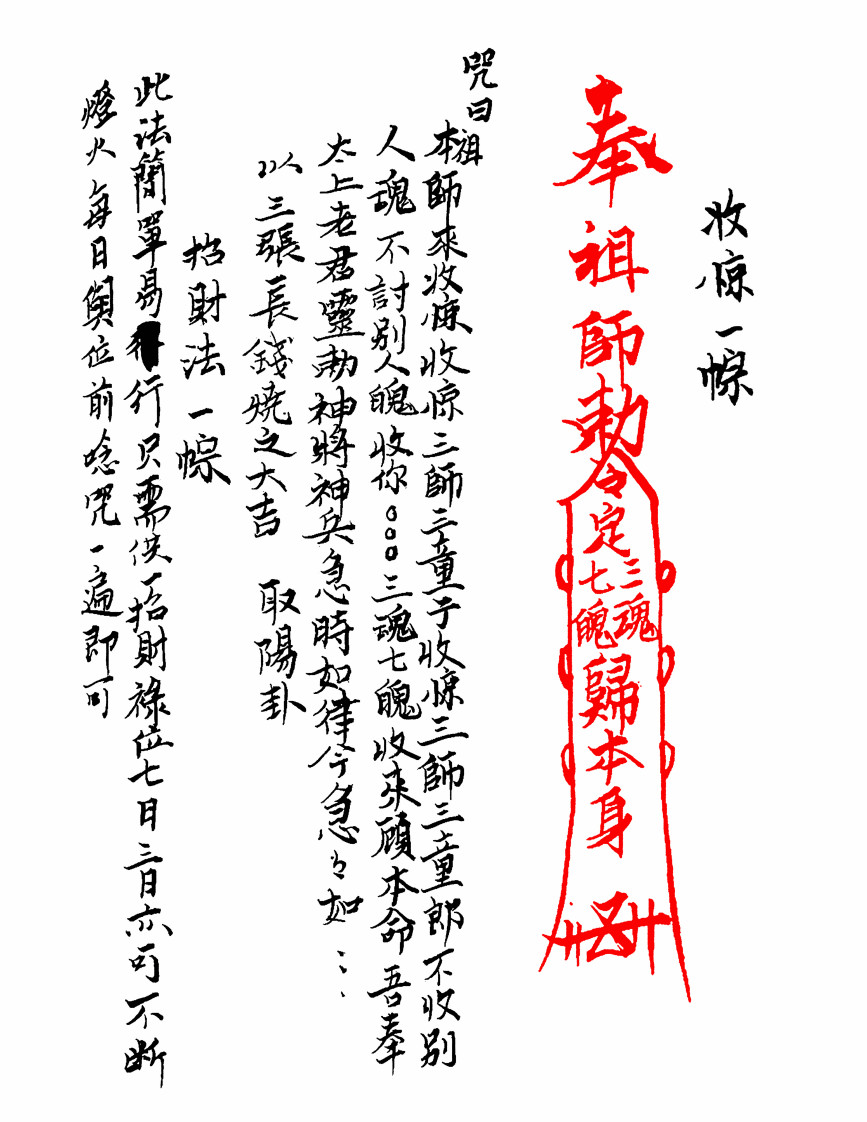 收惊一幖
奉祖師勅令定三魂七魄歸本身
咒曰
本祖師來收惊收惊三師三童子收惊三師三童郎不收别
人魂不討别人魄收你○○○三魂七魄收來顧本命吾奉
太上老君靈勅神將神兵急時如律令急々如……
以三張長錢燒之大吉 取陽卦
招財法一幖
此法簡單易行只需供一招財祿位七日三日亦可不斷
燈火每日與位前唸咒一遍即可